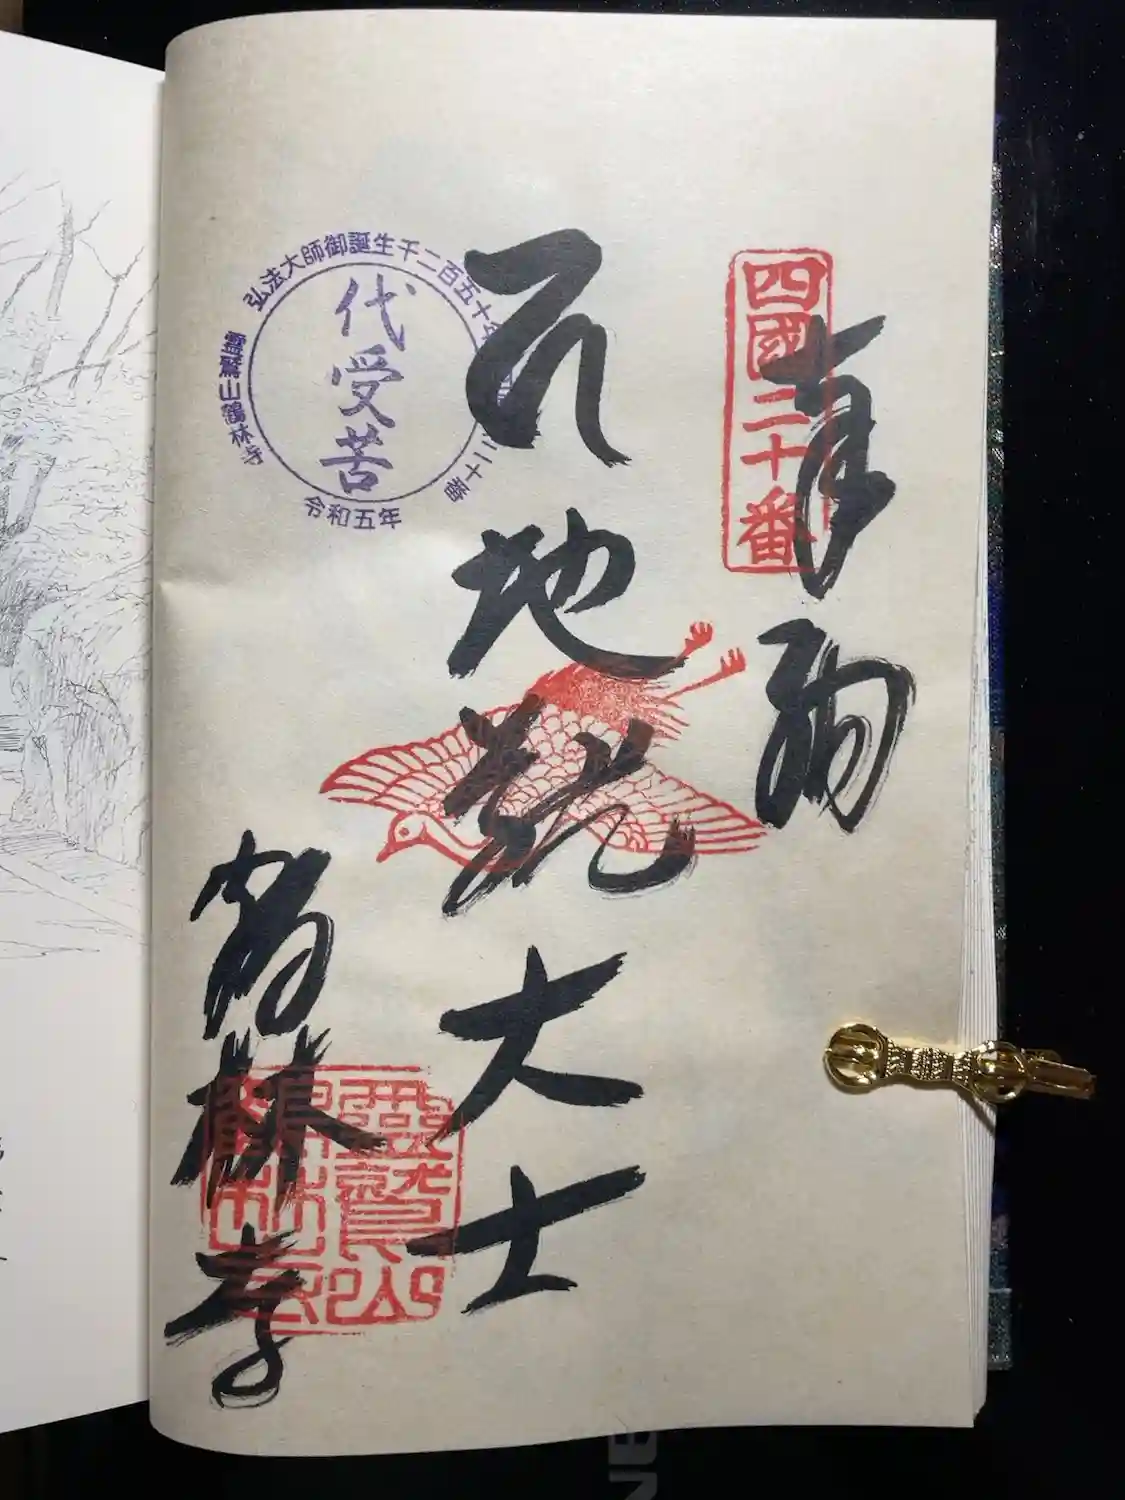 四國二十番
奉納
地蔵大士
弘法大師御誕生千二百五十年
二十番
霊鷲山鶴林寺
代受苦
令和五年
鶴林寺
霊鷲山
鶴林寺